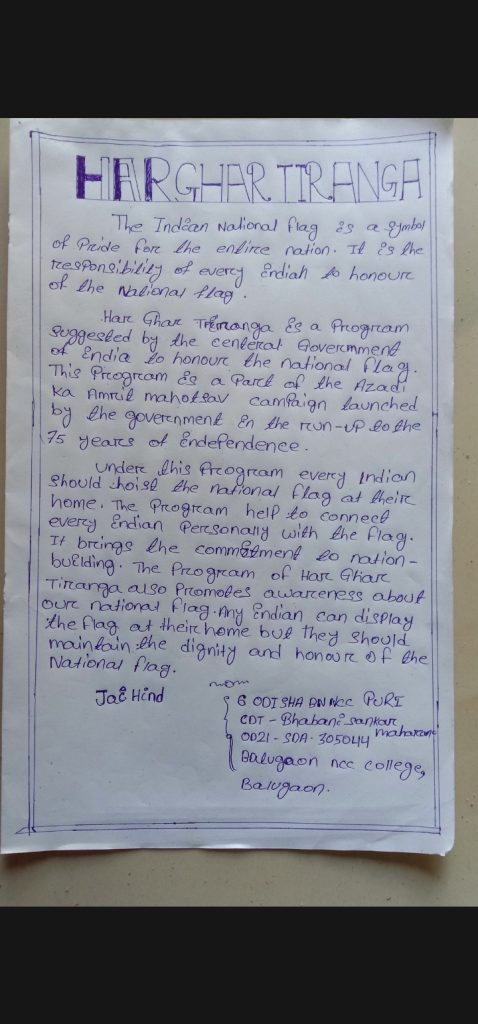 HAR GHAR TIRANGA
The Indian National flag is a symbol
of Pride for the entire nation. It is the
responsibility of every Indian to honour
of the National flag.
Har Ghar Tiranga is a Program
suggested by the centeral Government
of India to honour the national flag.
This Program is a Part of the Azadi
Ka Amrit mahotsav campaign launched
by the government in the run-up to the
75 years of independence.
Under this Program every Indian
should hoist the national flag at their
home. The Program help to connect
every Indian Personally with the flag.
It brings the commitment to nation-
building. The Program of Har Ghar
Tiranga also Promotes awareness about
our national flag. Any Indian can display
the flag at their home but they should
maintain the dignity and honour of the
National flag.
Jai Hind
6 ODISHA BN NCC PURI
CDT - Bhabani sankar
maharana
OD21 - SDA - 305044
Balugaon ncc college,
Balugaon.